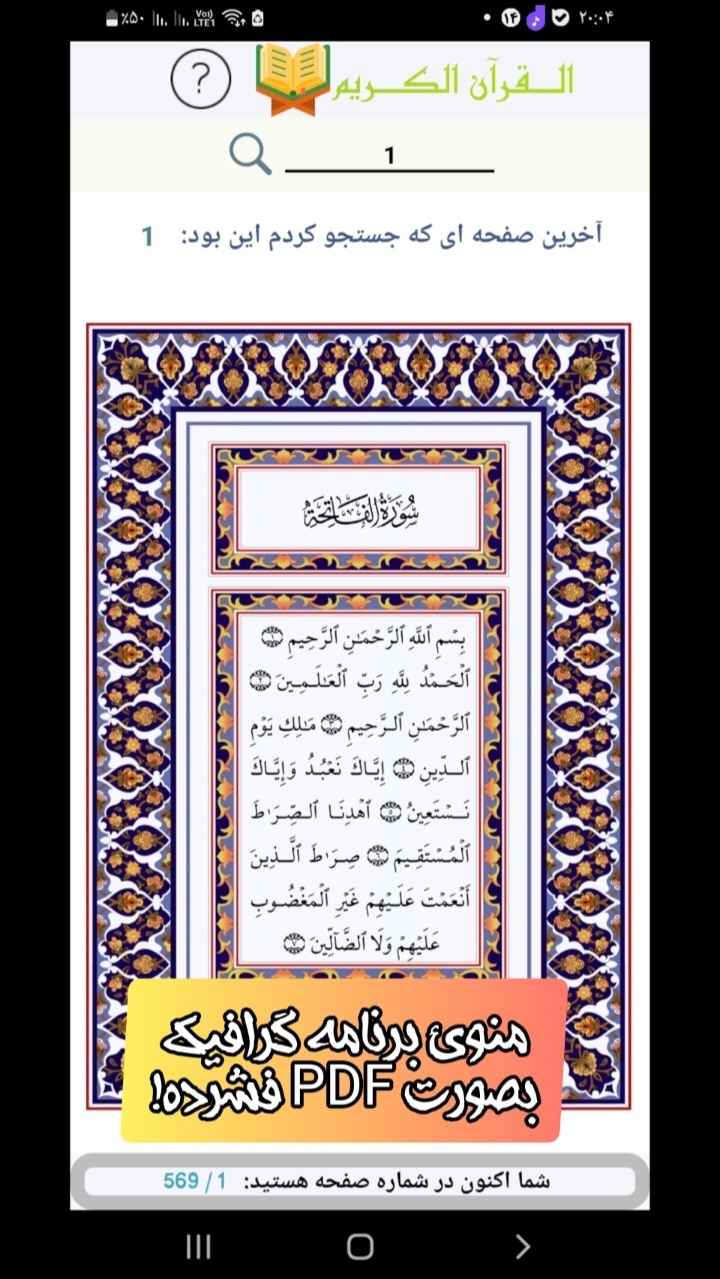 ٪۵۰ Vo)) LTE1 ۱۴ ۲۰:۰۴
? القرآن الكريم
1
آخرین صفحه ای که جستجو کردم این بود: 1
سُورَةُ الفَاتِحَةِ
بِسۡمِ ٱللَّهِ ٱلرَّحۡمَـٰنِ ٱلرَّحِيمِ ۝١
ٱلۡحَمۡدُ لِلَّهِ رَبِّ ٱلۡعَـٰلَمِينَ ۝٢
ٱلرَّحۡمَـٰنِ ٱلرَّحِيمِ ۝٣ مَـٰلِكِ يَوۡمِ
ٱلدِّينِ ۝٤ إِيَّاكَ نَعۡبُدُ وَإِيَّاكَ
نَسۡتَعِينُ ۝٥ ٱهۡدِنَا ٱلصِّرَٰطَ
ٱلۡمُسۡتَقِيمَ ۝٦ صِرَٰطَ ٱلَّذِينَ
أَنۡعَمۡتَ عَلَيۡهِمۡ غَيۡرِ ٱلۡمَغۡضُوبِ
عَلَيۡهِمۡ وَلَا ٱلضَّآلِّينَ ۝٧
منوئ برنامه گرافیک
بصورت PDF فشرده!
شما اکنون در شماره صفحه هستید: 1 / 569